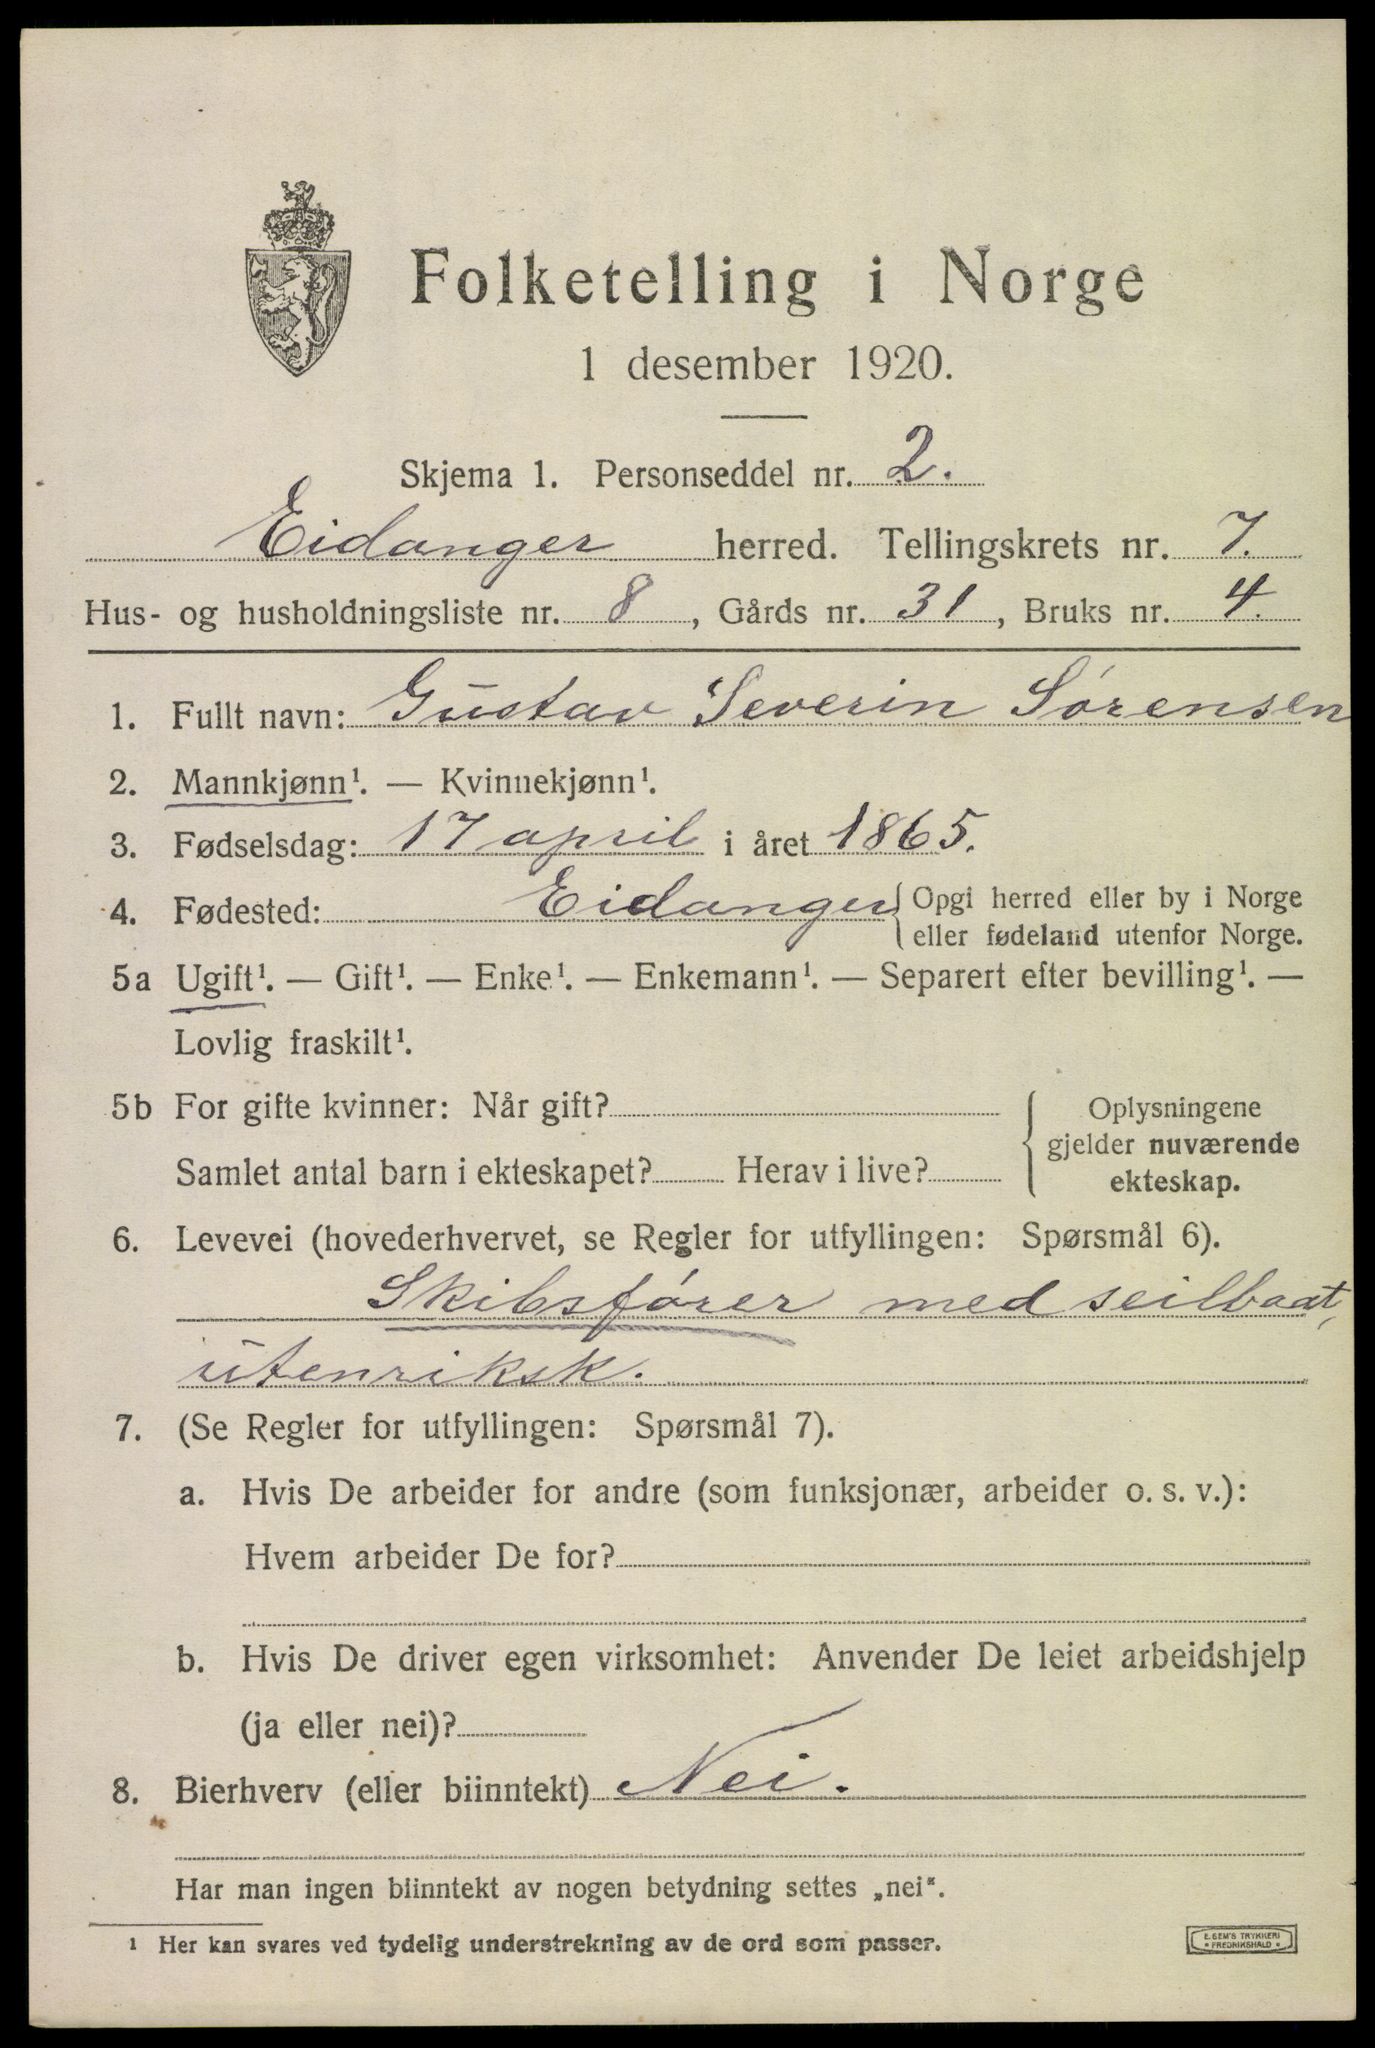 Folketelling i Norge
1 desember 1920.
Skjema 1. Personseddel nr. 2.
Eidanger herred. Tellingskrets nr. 7.
Hus- og husholdningsliste nr. 8, Gårds nr. 31, Bruks nr. 4.
1. Fullt navn: Gustav Severin Sørensen
2. Mannkjønn¹. — Kvinnekjønn¹.
3. Fødselsdag: 17 april i året 1865.
4. Fødested: Eidanger { Opgi herred eller by i Norge
eller fødeland utenfor Norge.
5a Ugift¹. — Gift¹. — Enke¹. — Enkemann¹. — Separert efter bevilling¹. —
Lovlig fraskilt¹.
5b For gifte kvinner: Når gift?
Samlet antal barn i ekteskapet? Herav i live?
{ Oplysningene
gjelder nuværende
ekteskap.
6. Levevei (hovederhvervet, se Regler for utfyllingen: Spørsmål 6).
Skibsfører med seilbaat,
utenriksk.
7. (Se Regler for utfyllingen: Spørsmål 7).
a. Hvis De arbeider for andre (som funksjonær, arbeider o. s. v.):
Hvem arbeider De for?
b. Hvis De driver egen virksomhet: Anvender De leiet arbeidshjelp
(ja eller nei)?
8. Bierhverv (eller biinntekt) Nei.
Har man ingen biinntekt av nogen betydning settes „nei“.
¹ Her kan svares ved tydelig understrekning av de ord som passer.
E. SEM'S TRYKKERI
• FREDRIKSHALD •